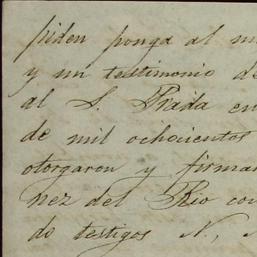 piden ponga al m
y un testimonio de
al S. Prada en
de mil ochocientos
otorgaron y firma
nez del Rio con
do testigos N,